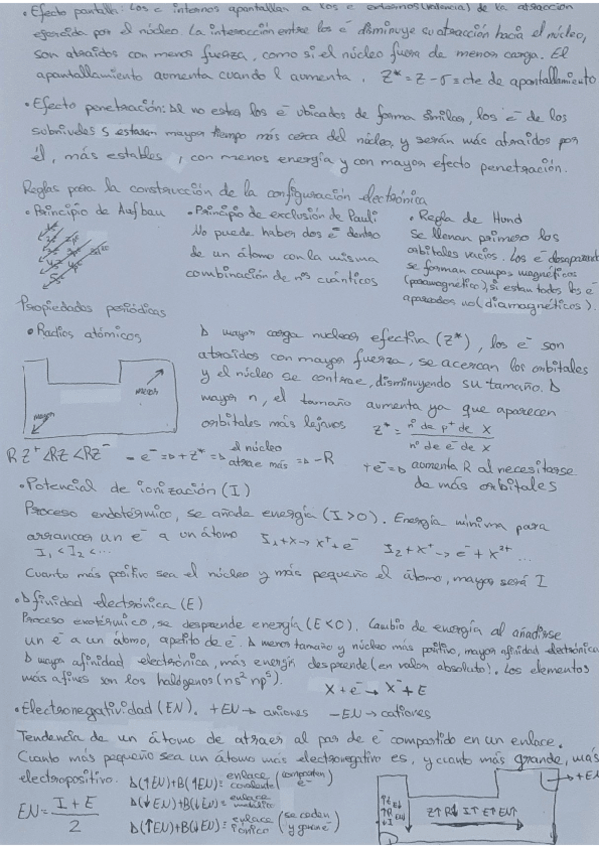 • Efecto pantalla: Los e⁻ internos apantallan a los e⁻ externos (valencia) de la atracción
ejercida por el núcleo. La interacción entre los e⁻ disminuye su atracción hacia el núcleo,
son atraídos con menos fuerza, como si el núcleo fuera de menor carga. El
apantallamiento aumenta cuando l aumenta. Z* = Z - σ = cte de apantallamiento
• Efecto penetración: al no estar los e⁻ ubicados de forma similar, los e⁻ de los
subniveles s estarán mayor tiempo más cerca del núcleo, y serán más atraídos por
él, más estables, con menos energía y con mayor efecto penetración.
Reglas para la construcción de la configuración electrónica
• Principio de Aufbau
• Principio de exclusión de Pauli
No puede haber dos e⁻ dentro
de un átomo con la misma
combinación de nos cuánticos
• Regla de Hund
Se llenan primero los
orbitales vacíos. Los e⁻ desaparead
se forman campos magnéticos
(paramagnético), si están todos los e⁻
apareados no (diamagnéticos).
Propiedades periódicas
• Radios atómicos
mayor
A mayor carga nuclear efectiva (Z*), los e⁻ son
atraídos con mayor fuerza, se acercan los orbitales
y el núcleo se contrae, disminuyendo su tamaño. A
mayor n, el tamaño aumenta ya que aparecen
orbitales más lejanos
Z* = nº de p⁺ de X / nº de e⁻ de X
RZ⁺ < RZ < RZ⁻ - e⁻ => + Z* => el núcleo atrae más => - R
+ e⁻ => aumenta R al necesitarse
de más orbitales
• Potencial de ionización (I)
Proceso endotérmico, se añade energía (I>0). Energía mínima para
arrancar un e⁻ a un átomo I₁ + X → X⁺ + e⁻ I₂ + X⁺ → e⁻ + X²⁺ ...
I₁ < I₂ < ...
Cuanto más positivo sea el núcleo y más pequeño el átomo, mayor será I
• Afinidad electrónica (E)
Proceso exotérmico, se desprende energía (E<0). Cambio de energía al añadirse
un e⁻ a un átomo, apetito de e⁻. A menor tamaño y núcleo más positivo, mayor afinidad electrónica
A mayor afinidad electrónica, más energía desprende (en valor absoluto). Los elementos
más afines son los halógenos (ns² np⁵).
X + e⁻ → X⁻ + E
• Electronegatividad (EN). + EN → aniones - EN → cationes
Tendencia de un átomo de atraer al par de e⁻ compartido en un enlace.
Cuanto más pequeño sea un átomo más electronegativo es, y cuanto más grande, más
electropositivo.
A(↑EN)+B(↑EN) = enlace covalente (comparten e⁻)
A(↓EN)+B(↓EN) = enlace metálico
A(↑EN)+B(↓EN) = enlace iónico (se ceden y ganan e⁻)
EN = I + E / 2
+ EN
Z↑ R↓ I↑ E↑ EN↑